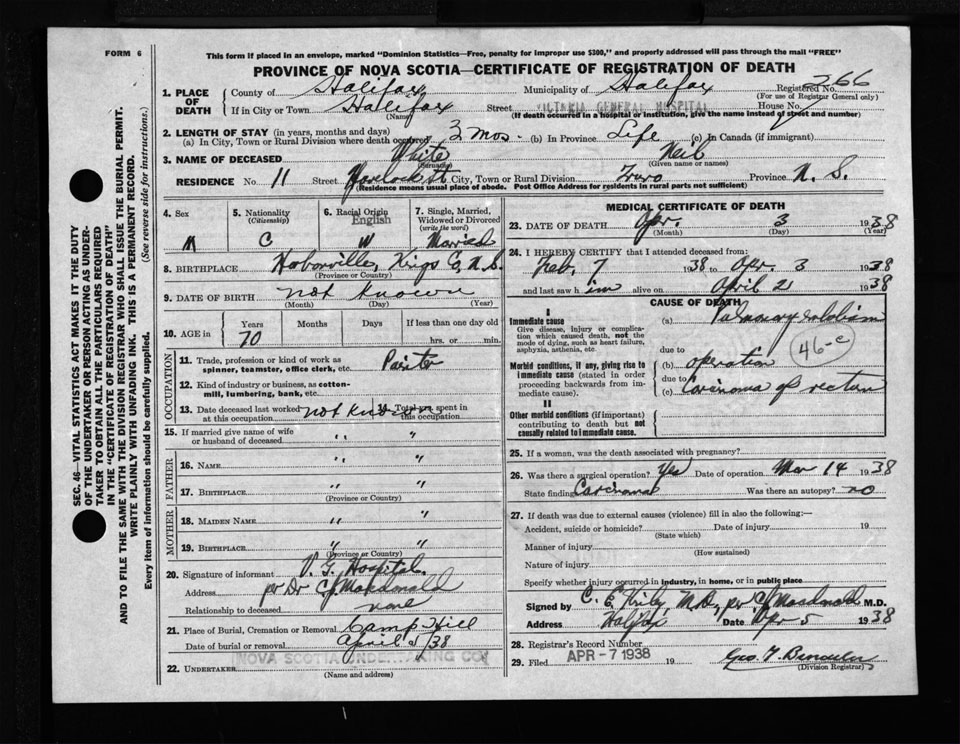 FORM 6
This form if placed in an envelope, marked "Dominion Statistics—Free, penalty for improper use $300," and properly addressed will pass through the mail "FREE"
PROVINCE OF NOVA SCOTIA—CERTIFICATE OF REGISTRATION OF DEATH
SEC. 46—VITAL STATISTICS ACT MAKES IT THE DUTY
OF THE UNDERTAKER OR PERSON ACTING AS UNDER-
TAKER TO OBTAIN ALL THE PARTICULARS REQUIRED
IN THE "CERTIFICATE OF REGISTRATION OF DEATH"
AND TO FILE THE SAME WITH THE DIVISION REGISTRAR WHO SHALL ISSUE THE BURIAL PERMIT.
WRITE PLAINLY WITH UNFADING INK. THIS IS A PERMANENT RECORD.
Every item of information should be carefully supplied. (See reverse side for instructions.)
1. PLACE OF DEATH County of Halifax Municipality of Halifax Registered No. 366
(For use of Registrar General only)
If in City or Town Halifax Street VICTORIA GENERAL HOSPITAL House No.
(Name) (If death occurred in a hospital or institution, give the name instead of street and number)
2. LENGTH OF STAY (in years, months and days)
(a) In City, Town or Rural Division where death occurred 3 mos. (b) In Province Life (c) In Canada (if immigrant)
3. NAME OF DECEASED White Neil
(Surname) (Given name or names)
RESIDENCE No. 11 Street Havelock St City, Town or Rural Division Truro Province N. S.
(Residence means usual place of abode. Post Office Address for residents in rural parts not sufficient)
4. Sex M
5. Nationality (Citizenship) C
6. Racial Origin English W
7. Single, Married, Widowed or Divorced (write the word) Married
8. BIRTHPLACE Harborville, Kings Co, N.S.
(Province or Country)
9. DATE OF BIRTH not known
(Month) (Day) (Year)
10. AGE in Years Months Days If less than one day old
70 hrs. or min.
OCCUPATION
11. Trade, profession or kind of work as spinner, teamster, office clerk, etc. Painter
12. Kind of industry or business, as cotton-mill, lumbering, bank, etc.
13. Date deceased last worked at this occupation not known 14. Total yrs. spent in this occupation
15. If married give name of wife or husband of deceased " "
FATHER
16. NAME " "
17. BIRTHPLACE " "
(Province or Country)
MOTHER
18. MAIDEN NAME " "
19. BIRTHPLACE " "
(Province or Country)
20. Signature of informant V. G. Hospital
Address per Dr C J Macdonald
Relationship to deceased none
21. Place of Burial, Cremation or Removal Camp Hill
Date of burial or removal April /38
22. UNDERTAKER NOVA SCOTIA UNDERTAKING CO
(Name and address)
MEDICAL CERTIFICATE OF DEATH
23. DATE OF DEATH Apr. 3 1938
(Month) (Day) (Year)
24. I HEREBY CERTIFY that I attended deceased from:
Feb. 7 1938 to Apr. 3 1938
and last saw him alive on April 2 1938
CAUSE OF DEATH
I
Immediate cause (a) Pulmonary embolism
Give disease, injury or complication which caused death, not the mode of dying, such as heart failure, asphyxia, asthenia, etc.
due to 46-c
Morbid conditions, if any, giving rise to immediate cause (stated in order proceeding backwards from immediate).
(b) operation
due to
(c) Carcinoma of rectum
II
Other morbid conditions (if important) contributing to death but not causally related to immediate cause.
25. If a woman, was the death associated with pregnancy?
26. Was there a surgical operation? Yes Date of operation Mar 14 1938
State finding Carcinoma Was there an autopsy? no
27. If death was due to external causes (violence) fill in also the following:—
Accident, suicide or homicide? Date of injury 19
(State which)
Manner of injury
(How sustained)
Nature of injury
Specify whether injury occurred in industry, in home, or in public place
Signed by C. E. Kirby, M.D., per C J Macdonald M.D.
Address Halifax Date Apr 5 1938
28. Registrar's Record Number
29. Filed APR - 7 1938 19 Geo. F.
(Division Registrar)